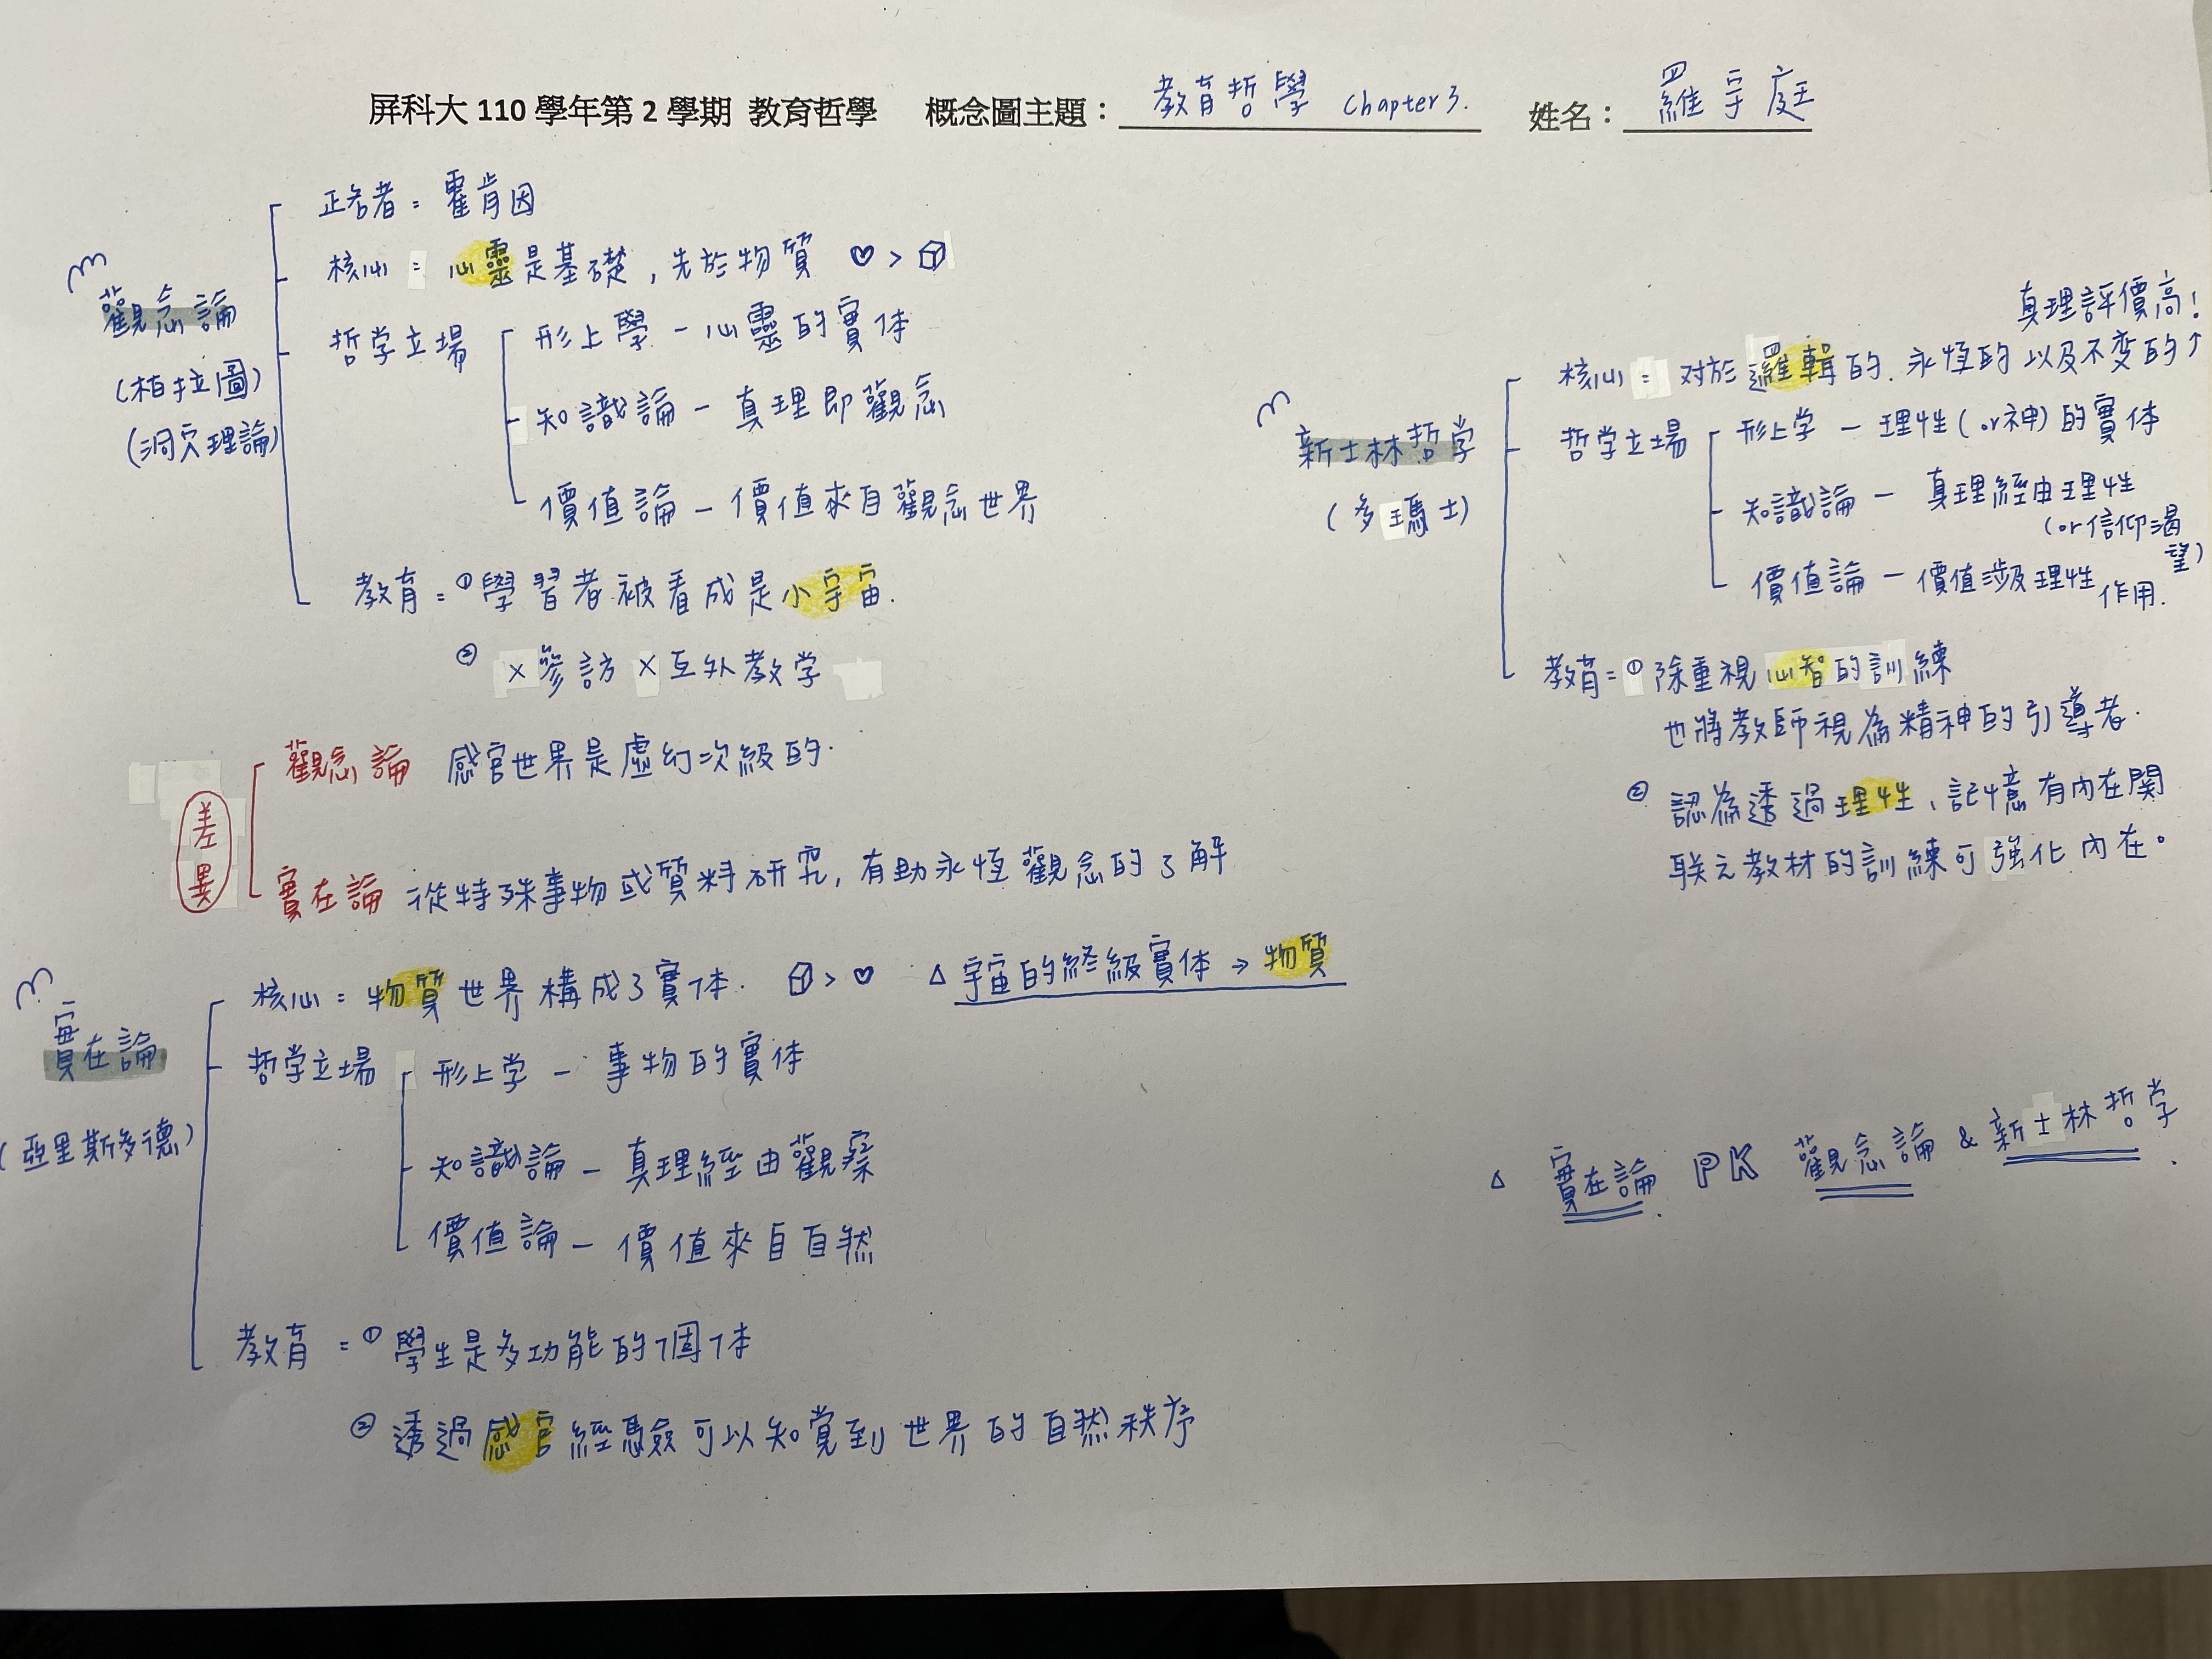 屏科大 110 學年第 2 學期 教育哲學 概念圖主題：教育哲學 Chapter 3. 姓名：羅宇庭
觀念論
(柏拉圖)
(洞穴理論)
霍肯因
核心 = 心靈是基礎，先於物質 ♡ >
哲学立場
形上學 - 心靈的實体
知識論 - 真理即觀念
價值論 - 價值來自觀念世界
教育 = ① 學習者被看成是小宇宙.
② ×參訪 ×互外教学
差異
觀念論 感官世界是虛幻次級的.
實在論 從特殊事物或質料研究, 有助永恆觀念的了解
實在論
(亞里斯多德)
核心 = 物質世界構成了實体. > ♡ △ 宇宙的終級實体 → 物質
哲学立場
形上学 - 事物的實体
知識論 - 真理經由觀察
價值論 - 價值來自自然
教育 = ① 學生是多功能的個体
② 透過感官經驗可以知覚到世界的自然秩序
新士林哲学
(多瑪士)
真理評價高!
核心 = 对於邏輯的、永恆的以及不变的↑
哲学立場
形上学 - 理性(or神)的實体
知識論 - 真理經由理性
(or信仰渴望)
價值論 - 價值涉及理性作用.
教育 = ① 除重視心智的訓練
也將教師視為精神的引導者.
② 認為透過理性、記憶有內在関
联之教材的訓練可強化內在。
△ 實在論. PK 觀念論 & 新士林哲学.